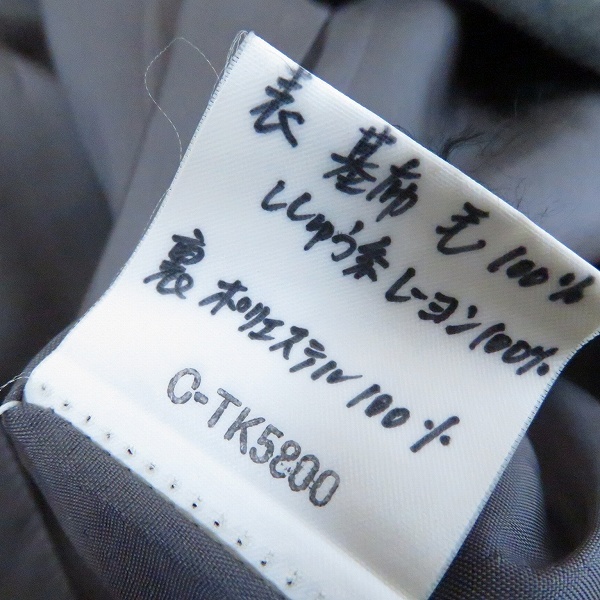 表 基布 毛100%
ししゅう糸 レーヨン100%
裏 ポリエステル100%
C-TK5800